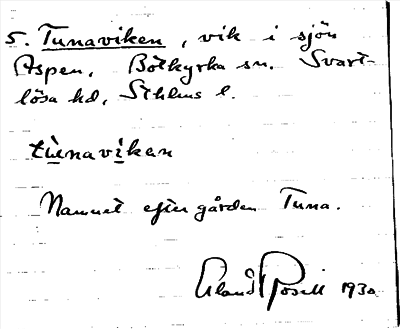 5. Tunaviken, vik i sjön
Aspen, Botkyrka sn. Svart-
lösa hd, Sthlms l.
tùnavìken
Namnet efter gården Tuna.
1930